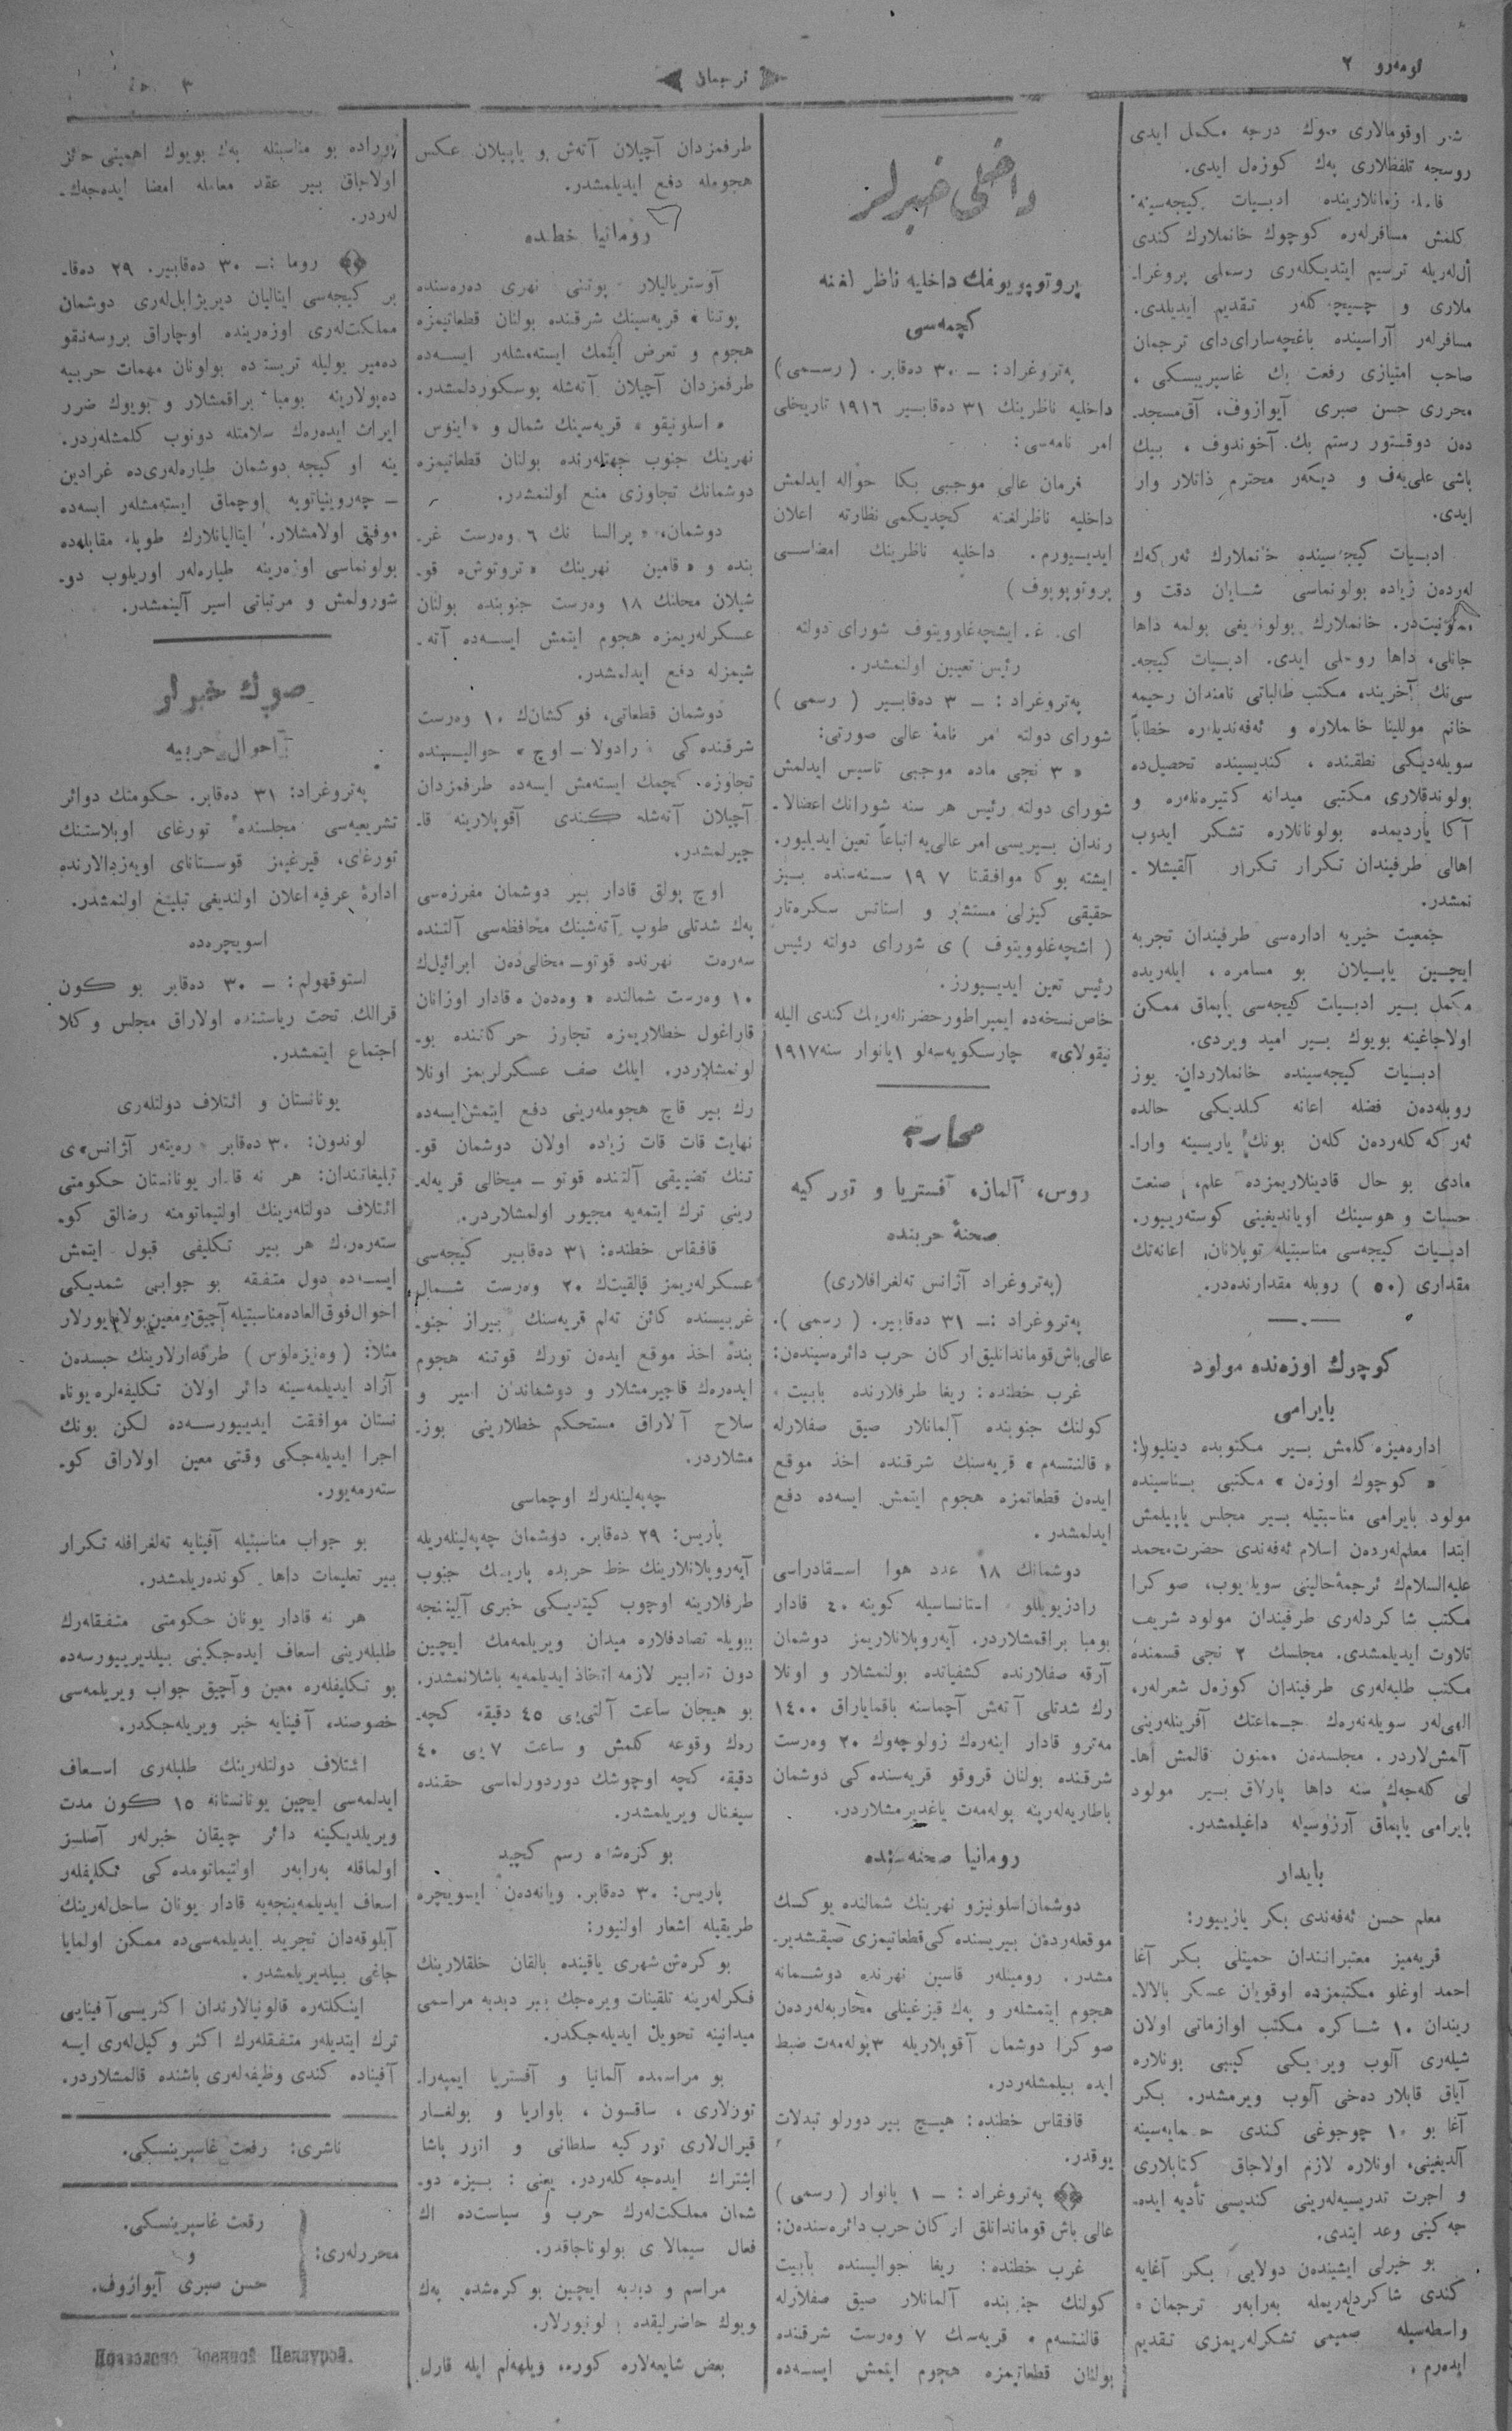 نومەرو ٢
ترجمان
٣
شعر اوقومالاری صوك درجه مكمل ایدی
روسجه تلفظلاری پەك كوزەل ایدی.
زمانلارینده ادبیات كیجەسینه
كلمش مسافرلەره كوچوك خانملارك كندی
أل‌لەریله ترسیم ایتدیكلەری رسملی پروغرا-
ملاری و چیچەكلەر تقدیم ایدیلدی.
مسافرلەر آراسینده باغچەسارای‌دای ترجمان
صاحب امتیازی رفعت بك غاسپرینسكی ،
محرری حسن صبری آیوازوف، آق‌مسجد-
دەن دوقتور رستم بك آخوندوف ، بیك
باشی علی‌یەف و دیگەر محترم ذاتلار وار
ایدی.
ادبیات كیجەسینده خانملارك ئەركەك
لەردەن زیاده بولونماسی شایان دقت و
ممنونیت‌در. خانملارك بولوندیغی بولمه داها
جانلی، داها روحلی ایدی. ادبیات كیجە-
سی‌نك آخرینده مكتب طالباتی نامندان رحیمه
خانم موللینا خانملاره و ئەفەندیلەره خطاباً
سویلەدیكی نطقنده ، كندیسینده تحصیل‌ده
بولوندقلاری مكتبی میدانه كتیرەنلەره و
آكا یاردیمده بولونانلاره تشكر ایدوب
اهالی طرفیندان تكرار تكرار آلقیشلا-
نمشدر.
جمعیت خیریه ادارەسی طرفیندان تجربه
ایچین یاپیلان بو مسامره ، ایلەریده
مكمل بیر ادبیات كیجەسی یاپماق ممكن
اولاجاغینه بویوك بیر امید ویردی.
ادبیات كیجەسینده خانملاردان یوز
روبلەدەن فضله اعانه كلدیكی حالده
ئەركەكلەردەن كلەن بونك یاریسینه وارا-
مادی بو حال قادینلاریمزده علم، صنعت
حسیات و هوسینك اویاندیغینی كوستەرییور.
ادبیات كیجەسی مناسبتیله توپلانان اعانەنك
مقداری (٥٠ ) روبله مقدارنده‌در.
كوچوك اوزەنده مولود
بایرامی
ادارەمیزه كلمش بیر مكتوبده دینلیور:
« كوچوك اوزەن » مكتبی بناسینده
مولود بایرامی مناسبتیله بیر مجلس یاپیلمش
ابتدا معلم‌لەردەن اسلام ئەفەندی حضرت محمد
علیه‌السلام‌ك ترجمۀ‌حالینی سویلەیوب، صوكرا
مكتب شاكردلەری طرفیندان مولود شریف
تلاوت ایدیلمشدی. مجلسك ٢ نجی قسمنده
مكتب طلبەلەری طرفیندان كوزەل شعرلەر،
الهی‌لەر سویلەنەرەك جماعتك آفرینلەرینی
آلمش‌لاردر. مجلسدەن ممنون قالمش اها-
لی كلەجەك سنه داها پارلاق بیر مولود
بایرامی یاپماق آرزوسیله داغیلمشدر.
بایدار
معلم حسن ئەفەندی بكر یازییور:
قریەمیز معتبرانندان حمیتلی بكر آغا
احمد اوغلو مكتبمزده اوقویان عسكر بالالا-
ریندان ١٠ شاكرده مكتب لوازماتی اولان
شیلەری آلوب ویردیكی كیبی بونلاره
آیاق قابلار دەخی آلوب ویرمشدر. بكر
آغا بو ١٠ چوجوغی كندی حمایەسینه
آلدیغینی، اونلاره لازم اولاجاق كتابلاری
و اجرت تدریسیەلەرینی كندیسی تأدیه ایدە-
جەكینی وعد ایتدی.
بو خیرلی ایشیندەن دولایی بكر آغایه
كندی شاكردلەریمله بەرابەر ترجمان
واسطەسیله صمیمی تشكرلەریمزی تقدیم
ایدەرم .
داخلی خبرلر
پروتوپوپوفك داخلیه ناظرلغنه
كچمەسی
پەتروغراد: — ٣٠ دەقابر. ( رسمی )
داخلیه ناظرینك ٣١ دەقابیر ١٩١٦ تاریخلی
امر نامەسی:
فرمان عالی موجبی بكا حواله ایدلمش
داخلیه ناظرلغنه كچدیكمی نظارته اعلان
ایدییورم. داخلیه ناظرینك امضاسی
پروتوپوپوف )
ای. غ. ایشچەغلوویتوف شورای دولته
رئیس تعیین اولنمشدر.
پەتروغراد: — ٣ دەقابیر ( رسمی )
شورای دولته امر نامۀ عالی صورتی:
« ٣ نجی ماده موجبی تاسیس ایدلمش
شورای دولته رئیس هر سنه شورانك اعضالا-
رندان بیریسی امر عالی‌یه اتباعاً تعین ایدیلیور.
ایشته بوكا موافقتا ١٩٠٧ سنەسنده بیز
حقیقی كیزلی مستشار و استاتس سكرەتار
( اشچەغلوویتوف ) ی شورای دولته رئیس
رئیس تعین ایدییورز.
خاص نسخەده ایمپراطور حضرتلەرینك كندی الیله
نیقولای» چارسكویەسەلو ١یانوار سنه ١٩١٧
محاربه
روس، آلمان، آفستریا و توركیه
صحنۀ حربنده
(پەتروغراد آژانس تەلغرافلاری)
پەتروغراد :— ٣١ دەقابیر. ( رسمی ).
عالی‌باش‌قوماندانلیق اركان حرب دائرەسیندەن:
غرب خطنده: ریغا طرفلارنده بابیت
كولنك جنوبنده آلمانلار صیق صفلارله
« قالنتسەم » قریەسنك شرقنده اخذ موقع
ایدەن قطعاتمزه هجوم ایتمش ایسەده دفع
ایدلمشدر .
دوشمانك ١٨ عدد هوا اسقادراسی
رادزیویللو استانساسیله كوینه ٤٠ قادار
بومبا براقمشلاردر. آیەروپلانلاریمز دوشمان
آرقه صفلارنده كشفیاتده بولنمشلار و اونلا
رك شدتلی آتەش آچماسنه باقمایاراق ١٤٠٠
مەترو قادار اینەرەك زولوچەوك ٢٠ وەرست
شرقنده بولنان قروقو قریەسنده كی دوشمان
باطاریەلەرینه پولەمەت یاغدیرمشلاردر.
رومانیا صحنەسنده
دوشمان اسلونیزو نهرینك شمالنده یوكسك
موقعلەردەن بیریسنده كی قطعاتیمزی صیقشدیر-
مشدر. رومینلەر قاسین نهرنده دوشمانه
هجوم ایتمشلەر و پەك قیزغینلی محاربەلەردەن
صوكرا دوشمان آقوپلاریله ٣ پولەمەت ضبط
ایده بیلمشلەردر.
قافقاس خطنده: هیچ بیر دورلو تبدلات
یوقدر.
پەتروغراد: — ١ یانوار ( رسمی )
عالی باش قوماندانلق اركان حرب دائرەسندەن:
غرب خطنده: ریغا حوالیسنده بابیت
كولنك جنوبنده آلمانلار صیق صفلارله
قالنتسەم » قریەسنك ٧ وەرست شرقنده
بولنان قطعاتیمزه هجوم ایتمش ایسەده
طرفمزدان آچیلان آتەش و یاپیلان عكس
هجومله دفع ایدیلمشدر.
رومانیا خطنده
آوستریالیلار پوتنی نهری دەرەسنده
پوتنا » قریەسینك شرقنده بولنان قطعاتیمزه
هجوم و تعرض ایتمك ایستەمشلەر ایسەده
طرفمزدان آچیلان آتەشله پوسكوردلمشدر.
« اسلونیقو » قریەسینك شمال و «اینوس
نهرینك جنوب جهتلەرنده بولنان قطعاتیمزه
دوشمانك تجاوزی منع اولنمشدر.
دوشمان، « پرالسا نك ٦ وەرست غر-
بنده و « قامین نهرینك « تروتوش» قو-
شیلان محلنك ١٨ وەرست جنوبنده بولنان
عسكرلەریمزه هجوم ایتمش ایسەده آتە-
شیمزله دفع ایدلمشدر.
دوشمان قطعاتی، فوكشان‌ك ١٠ وەرست
شرقنده‌كی رادولا — اوچ » حوالیسینده
تجاوزه كچمك ایستەمش ایسەده طرفمزدان
آچیلان آتەشله كندی آقوپلارینه قا-
چیرلمشدر.
اوچ پولق قادار بیر دوشمان مفرزەسی
پەك شدتلی طوپ آتەشینك محافظەسی آلتنده
سەرەت نهرنده قوتو— مخالی‌دەن ابرائیل‌ك
١٠ وەرست شمالنده « وەدەن » قادار اوزانان
قاراغول خطلاریمزه تجاوز حركاتنده بو-
لونمشلاردر. ایلك صف عسكرلریمز اونلا
رك بیر قاچ هجوملەرینی دفع ایتمش ایسەده
نهایت قات قات زیاده اولان دوشمان قو-
تنك تضییقی آلتنده قوتو — میخالی قریەلە-
رینی ترك ایتمەیه مجبور اولمشلاردر.
قافقاس خطنده: ٣١ دەقابیر كیجەسی
عسكرلەریمز قالقیت‌ك ٢٠ وەرست شمال
غربیسنده كائن تەلم قریەسنك بیراز جنو-
بنده اخذ موقع ایدەن تورك قوتنه هجوم
ایدەرەك قاچیرمشلار و دوشماندان اسیر و
سلاح آلاراق مستحكم خطلارینی بوز-
مشلاردر.
چەپەلینلەرك اوچماسی
پاریس: ٢٩ دەقابر. دوشمان چەپەلینلەریله
آیەروپلانلارینك خط حربده پاریسك جنوب
طرفلارینه اوچوب كیتدیكی خبری آلینجه
بویله تصادفلاره میدان ویریلمەمك ایچین
دون تدابیر لازمه اتخاذ ایدیلمەیه باشلانمشدر.
بو هیجان ساعت آلتی‌یی ٤٥ دقیقه كچە-
رەك وقوعه كلمش و ساعت ٧ یی ٤٠
دقیقه كچه اوچوشك دوردورلماسی حقنده
سیغنال ویریلمشدر.
بوكرەشده رسم كچید
پاریس: ٣٠ دەقابر. ویانەدەن ایسویچره
طریقیله اشعار اولنیور:
بوكرەش شهری یاقینده بالقان خلقلارینك
فكرلەرینه تلقینات ویرەجك بیر دبدبه مراسمی
میدانینه تحویل ایدیلەجكدر.
بو مراسمده آلمانیا و آفستریا ایمپەرا-
تورلاری ، ساقسون ، باواریا و بولغار
قیرال‌لاری توركیه سلطانی و انور پاشا
اشتراك ایدەجەكلەردر. یعنی : بیزه دو-
شمان مملكت‌لەرك حرب و سیاست‌ده اك
فعال سیمالاری بولوناجاقدر.
مراسم و دبدبه ایچین بوكرەشده پەك
بویوك حاضرلیقده بولونیورلار.
بعض شایعەلاره كوره، ویلهەلم ایله قارل
بوراده بو مناسبتله پەك بویوك اهمیتی حائز
اولاجاق بیر عقد معامله امضا ایدەجەك-
لەردر.
روما :— ٣٠ دەقابیر. ٢٩ دەقا-
بر كیجەسی ایتالیان دیریژابل‌لەری دوشمان
مملكت‌لەری اوزەرینده اوچاراق پروسەنقو
دەمیر یولیله تریستده بولونان مهمات حربیه
دەپولارینه بومبا براقمشلار و بویوك ضرر
ایراث ایدەرەك سلامتله دونوب كلمشلەردر.
ینه او كیجه دوشمان طیارەلەری‌ده غرادین
— چەروینیانویه اوچماق ایستەمشلەر ایسەده
موفق اولامشلار. ایتالیانلارك طوپلی مقابلەده
بولونماسی اوزەرینه طیارەلەر اوریلوب دو-
شورولمش و مرتباتی اسیر آلینمشدر.
صوك خبرلر
احوال حربیه
پەتروغراد: ٣١ دەقابر. حكومتك دوائر
تشریعیەسی مجلسنده تورغای اوبلاستنك
تورغای، قیرغیز قوستانای اویەزدالارنده
ادارۀ عرفیه اعلان اولندیغی تبلیغ اولنمشدر.
اسویچرەده
استوقهولم: — ٣٠ دەقابر بو كون
قرالك تحت ریاستنده اولاراق مجلس وكلا
اجتماع ایتمشدر.
یونانستان و ائتلاف دولتلەری
لوندون: ٣٠ دەقابر « رەیتەر آژانس»ی
تبلیغاتندان: هر نه قادار یونانستان حكومتی
ائتلاف دولتلەرینك اولتیماتومنه رضالق كو-
ستەرەرك هر بیر تكلیفی قبول ایتمش
ایسەده دول متفقه بو جوابی شمدیكی
احوال فوق‌العاده مناسبتیله آچیق و معین بولامایورلار
مثلا: (وەنیزەلوس ) طرفدارلارینك حبسدەن
آزاد ایدیلمەسینه دائر اولان تكلیفلەره یونا-
نستان موافقت ایدییورسەده لكن بونك
اجرا ایدیلەجكی وقتی معین اولاراق كو-
ستەرمەیور.
بو جواب مناسبتیله آفینایه تەلغرافله تكرار
بیر تعلیمات داها كوندەریلمشدر.
هر نه قادار یونان حكومتی متفقەلەرك
طلبلەرینی اسعاف ایدەجكینی بیلدیرییورسەده
بو تكلیفلەره معین و آچیق جواب ویریلمەسی
خصوصنده آفینایه خبر ویریلەجكدر.
ائتلاف دولتلەرینك طلبلەری اسعاف
ایدلمەسی ایچین یونانستانه ١٥ كون مدت
ویریلدیكینه دائر چیقان خبرلەر آصلسز
اولماقله بەرابەر اولتیماتومدەكی تكلیفلەر
اسعاف ایدیلمەینجەیه قادار یونان ساحل‌لەرینك
آبلوقەدان تجرید ایدیلمەسی‌ده ممكن اولمایا
جاغی بیلدیریلمشدر.
اینكلتەره قالونیالارندان اكثریسی آفینایی
ترك ایتدیلەر متفقلەرك اكثر وكیل‌لەری ایسه
آفیناده كندی وظیفەلەری باشنده قالمشلاردر.
ناشری: رفعت غاسپرینسكی.
محررلەری:
رفعت غاسپرینسكی.
و
حسن صبری آیوازوف.
Дозволено Военной Цензурой.